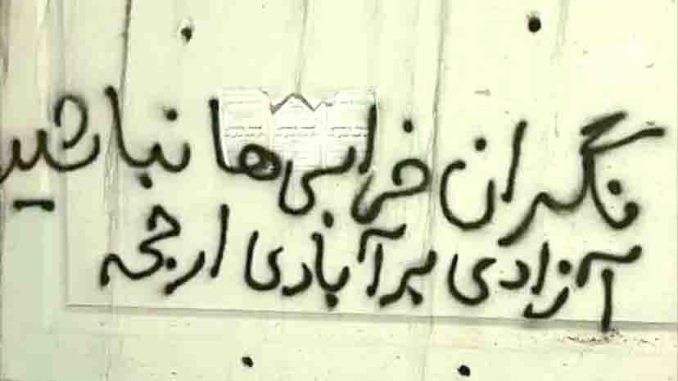 نگران خرابی‌ها نباشید
آزادی بر آبادی ارجحه